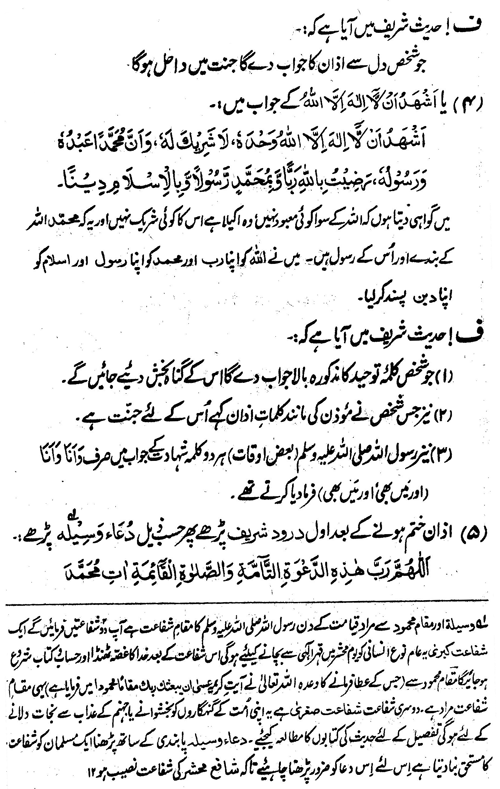 ف! حدیث شریف میں آیا ہے کہ:۔
جو شخص دل سے اذان کا جواب دے گا جنت میں داخل ہوگا
(۴) یا اَشْهَدُ اَنْ لَّا اِلٰهَ اِلَّا اللهُ کے جواب میں:۔
اَشْهَدُ اَنْ لَّا اِلٰهَ اِلَّا اللهُ وَحْدَهٗ، لَا شَرِيْكَ لَهٗ، وَاَنَّ مُحَمَّدًا عَبْدُهٗ
وَرَسُوْلُهٗ، رَضِيْتُ بِاللهِ رَبًّا وَّبِمُحَمَّدٍ رَّسُوْلًا وَّبِالْاِسْلَامِ دِيْنًا۔
میں گواہی دیتا ہوں کہ اللہ کے سوا کوئی معبود نہیں وہ اکیلا ہے اس کا کوئی شریک نہیں اور یہ کہ محمد اللہ
کے بندے اور اُس کے رسول ہیں۔ میں نے اللہ کو اپنا رب اور محمد کو اپنا رسول اور اسلام کو
اپنا دین پسند کر لیا۔
ف! حدیث شریف میں آیا ہے کہ:۔
(۱) جو شخص کلمۂ توحید کا مذکورہ بالا جواب دے گا اس کے گناہ بخش دیئے جائیں گے۔
(۲) نیز جس شخص نے مؤذن کی مانند کلماتِ اذان کہے اُس کے لئے جنت ہے۔
(۳) نیز رسول اللہ صلی اللہ علیہ وسلم (بعض اوقات) ہر دو کلمہ شہادت کے جواب میں صرف وَاَنَا وَاَنَا
(اور میں بھی اور میں بھی) فرما دیا کرتے تھے۔
(۵) اذان ختم ہونے کے بعد اول درود شریف پڑھے پھر حسب ذیل دُعاء وسیلہ لہ پڑھے:۔
اَللّٰهُمَّ رَبَّ هٰذِهِ الدَّعْوَةِ التَّآمَّةِ وَالصَّلٰوةِ الْقَآئِمَةِ اٰتِ مُحَمَّدَ
لہ وسیلۃ اور مقام محمود سے مراد قیامت کے دن رسول اللہ صلی اللہ علیہ وسلم کا مقامِ شفاعت ہے آپ دو شفاعتیں فرمائیں گے ایک
شفاعت کبریٰ یہ عام نوعِ انسانی کو یومِ محشر میں قہرِ الٰہی سے بچانے کیلئے ہوگی اس شفاعت کے بعد خدا کا غصہ ٹھنڈا اور حساب کتاب شروع
ہو جائیگا مقامِ محمود سے (جس کے عطا فرمانے کا وعدہ اللہ تعالیٰ نے آیت کریمہ عسیٰ ان یبعثک ربک مقاما محمودا میں فرمایا ہے) یہی مقام
شفاعت مراد ہے۔ دوسری شفاعت شفاعت صغریٰ ہے یہ اپنی اُمت کے گنہگاروں کو بخشوانے یا جہنم کے عذاب سے نجات دلانے
کے لئے ہوگی تفصیل کے لئے حدیث کی کتابوں کا مطالعہ کیجئے۔ دعاء وسیلہ پابندی کے ساتھ پڑھنا ایک مسلمان کو شفاعت
کا مستحق بنا دیتا ہے اس لئے اِس دعا کو ضرور پڑھنا چاہئیے تاکہ شافع محشر کی شفاعت نصیب ہو ۱۲